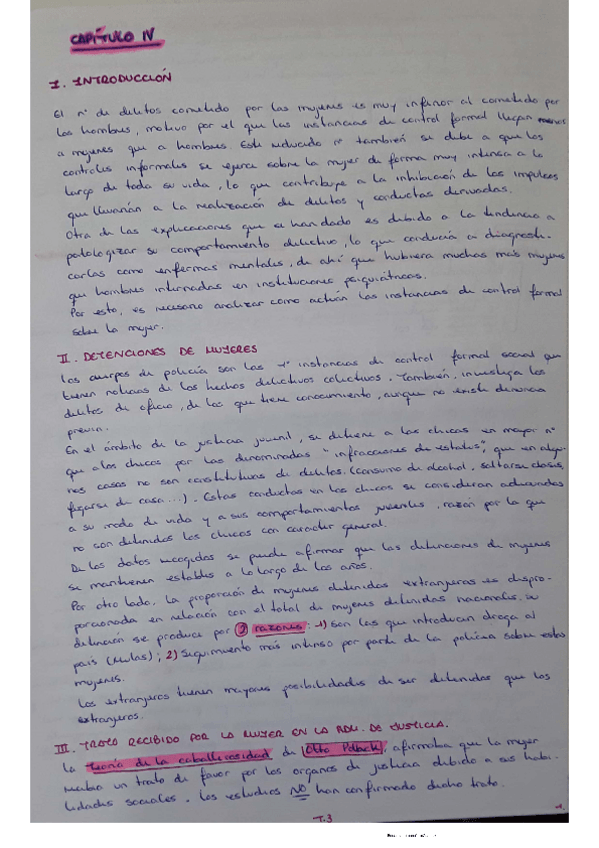 CAPÍTULO IV
I. INTRODUCCIÓN
El nº de delitos cometido por las mujeres es muy inferior al cometido por
los hombres, motivo por el que las instancias de control formal llegan menos
a mujeres que a hombres. Este reducido nº también se debe a que los
controles informales se ejerce sobre la mujer de forma muy intensa a lo
largo de toda su vida, lo que contribuye a la inhibición de los impulsos
que llevarían a la realización de delitos y conductas desviadas.
Otra de las explicaciones que se han dado es debido a la tendencia a
patologizar su comportamiento delictivo, lo que conducía a diagnosti-
carlas como enfermas mentales, de ahí que hubiera muchas más mujeres
que hombres internadas en instituciones psiquiátricas.
Por esto, es necesario analizar como actúan las instancias de control formal
sobre la mujer.
II. DETENCIONES DE MUJERES
Los cuerpos de policía son las 1ª instancias de control formal social que
tienen noticias de los hechos delictivos colectivos. También, investiga los
delitos de oficio, de los que tiene conocimiento, aunque no existe denuncia
previa.
En el ámbito de la justicia juvenil, se detiene a las chicas en mayor nº
que a los chicos por las denominadas "infracciones de estatus", que en algu-
nos casos no son constitutivas de delitos. (Consumo de alcohol, saltarse clases,
fugarse de casa...). Estas conductas en los chicos se consideran adecuadas
a su modo de vida y a sus comportamientos juveniles, razón por la que
no son detenidos los chicos con caracter general.
De los datos recogidos se puede afirmar que las detenciones de mujeres
se mantienen estables a lo largo de los años.
Por otro lado, la proporción de mujeres detenidas extranjeras es despro-
porcionada en relación con el total de mujeres detenidas nacionales.
detención se produce por 2 razones: 1) Son las que introducen droga al
país (Mulas); 2) Seguimiento más intenso por parte de la policía sobre estas
mujeres.
Los extranjeros tienen mayores posibilidades de ser detenidos que las
extranjeras.
III. TRATO RECIBIDO POR LA MUJER EN LA ADM. DE JUSTICIA.
La teoría de la caballerosidad de Otto Pollack, afirmaba que la mujer
recibía un trato de favor por los organos de justicia debido a sus habi-
lidades sociales. Los estudios NO han confirmado dicho trato.
T.3